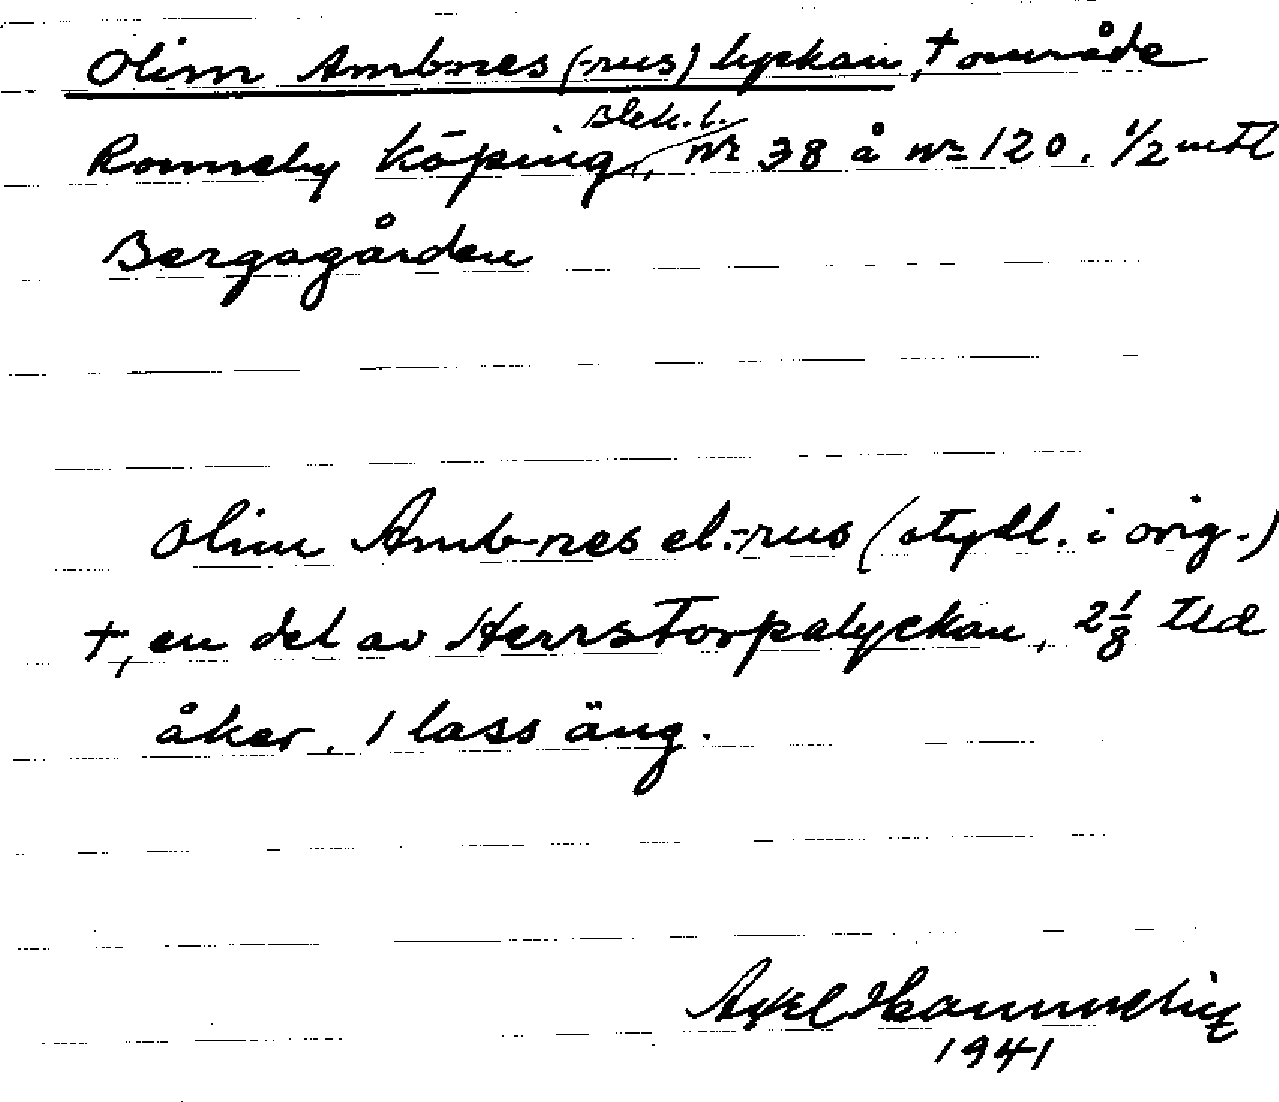 Olim Amb-nes (-rus) lyckan, † område
Blek. l.
Ronneby köping, nr 38 å nr 120. 1/2 mtl
Bergagården
Olim Amb-nes el.-rus (otydl. i orig.)
†, en del av Herrstorpalyckan, 2 1/8 tld
åker, 1 lass äng.
Axel
1941